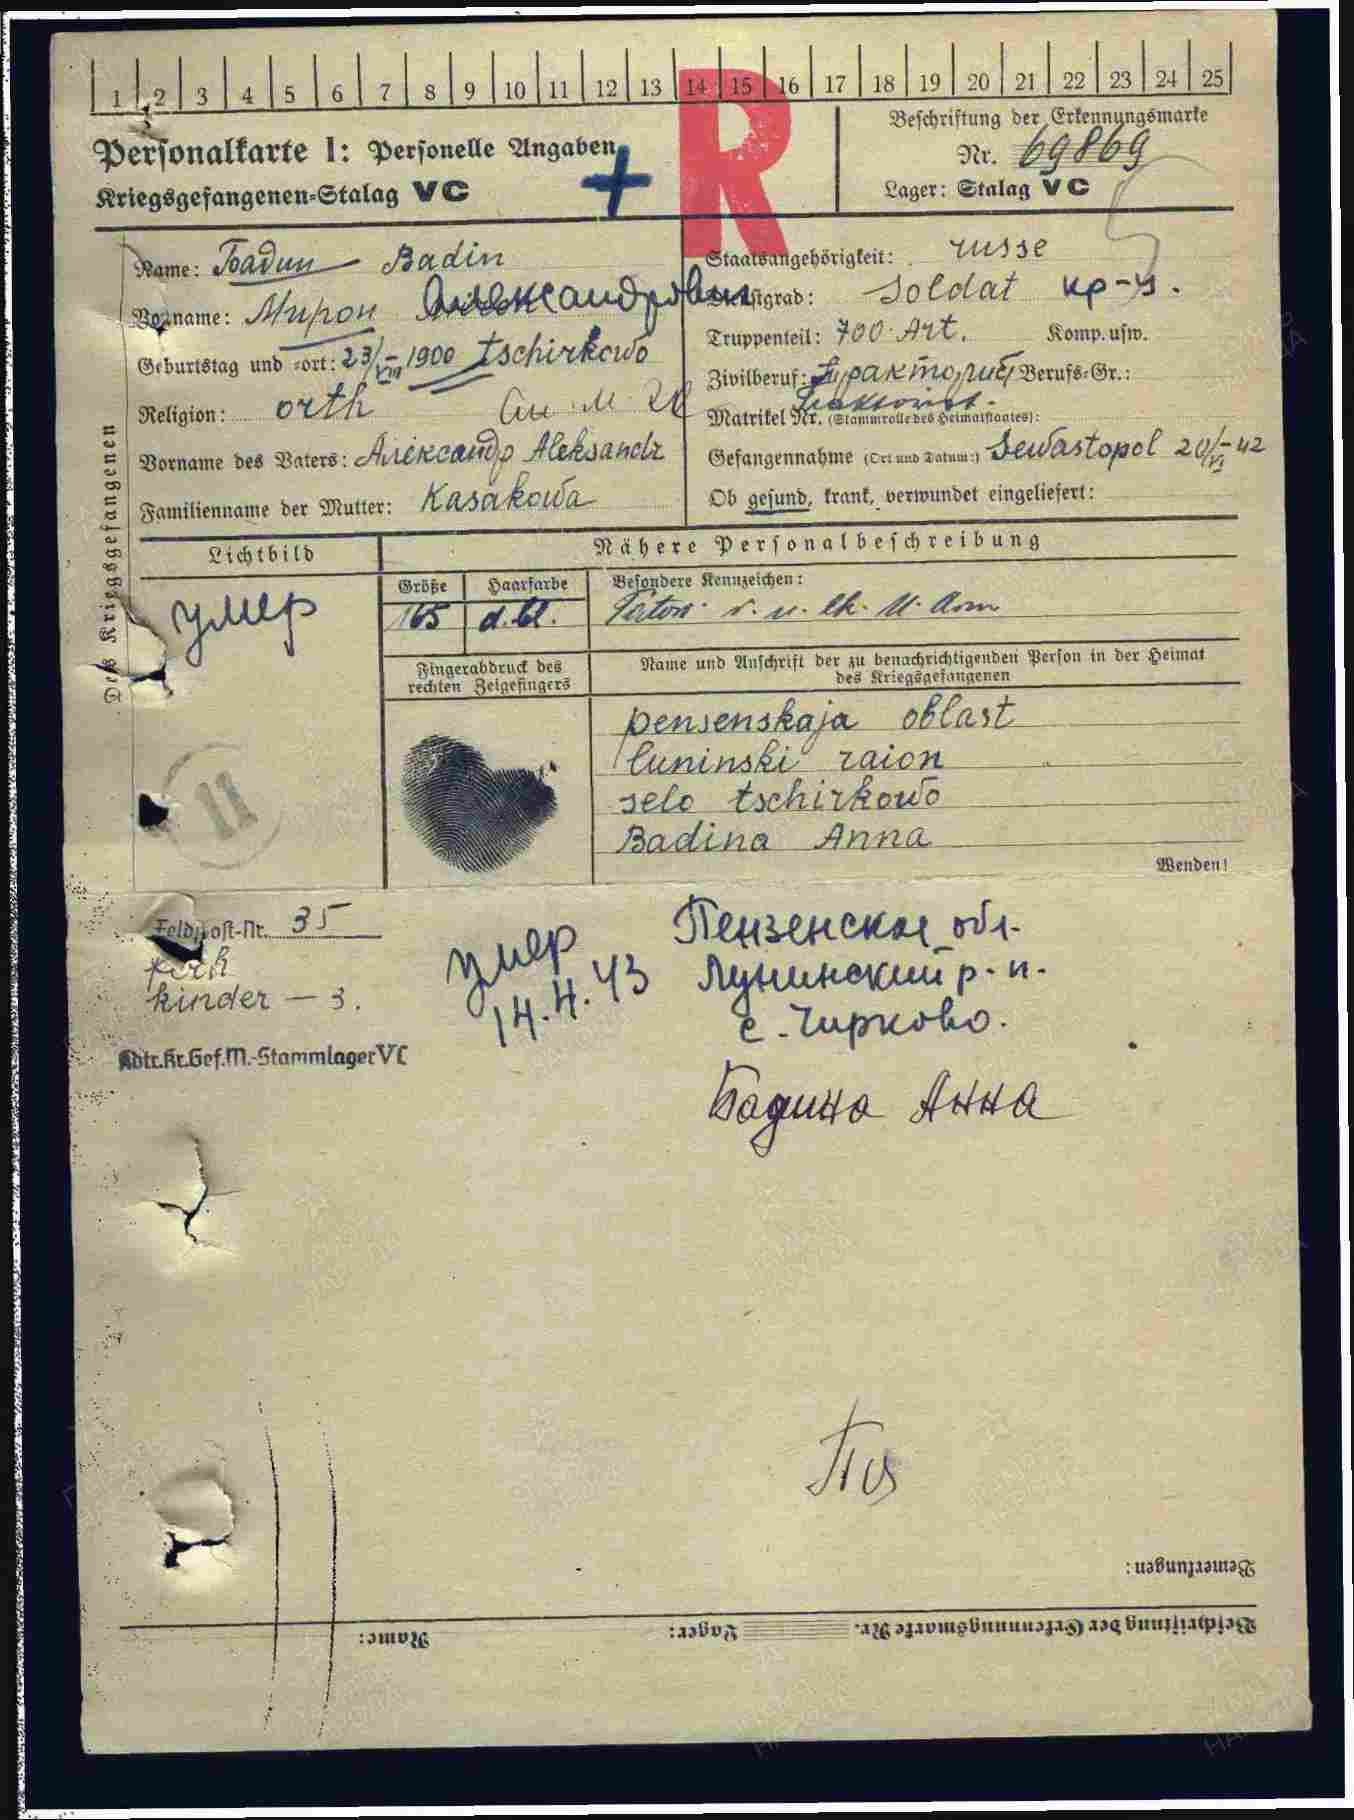 1 2 3 4 5 6 7 8 9 10 11 12 13 14 15 16 17 18 19 20 21 22 23 24 25
R
Personalkarte I: Personelle Angaben
Kriegsgefangenen-Stalag VC
+
Beschriftung der Erkennungsmarke
Nr. 69869
Lager: Stalag VC
Des Kriegsgefangenen
Name: Бадин Badin
Vorname: Мирон Александрович
Geburtstag und -ort: 23/VIII 1900 Tschirkowo
Religion: orth
Vorname des Vaters: Александр Aleksandr
Familienname der Mutter: Kasakowa
Staatsangehörigkeit: russe
Dienstgrad: Soldat кр-ц.
Truppenteil: 700 Art. Komp. usw.
Zivilberuf: Berufs-Gr.:
Matrikel Nr. (Stammrolle des Heimatstaates):
Gefangennahme (Ort und Datum:) Sewastopol 20/VI-42
Ob gesund, krank, verwundet eingeliefert:
Lichtbild
умер
11
Nähere Personalbeschreibung
Größe Haarfarbe Besondere Kennzeichen:
165 d.bl.
Fingerabdruck des
rechten Zeigefingers
Name und Anschrift der zu benachrichtigenden Person in der Heimat
des Kriegsgefangenen
pensenskaja oblast
luninski raion
selo tschirkowo
Badina Anna
Wenden!
Feldpost-Nr. 35
kinder – 3.
Abtr.Kr.Gef.M.-Stammlager VC
умер
14.4.43
Пензенская обл.
Лунинский р-н.
с. Чирково.
Бадина Анна
Bemerkungen:
Beschriftung der Erkennungsmarke Nr. Lager: Name: